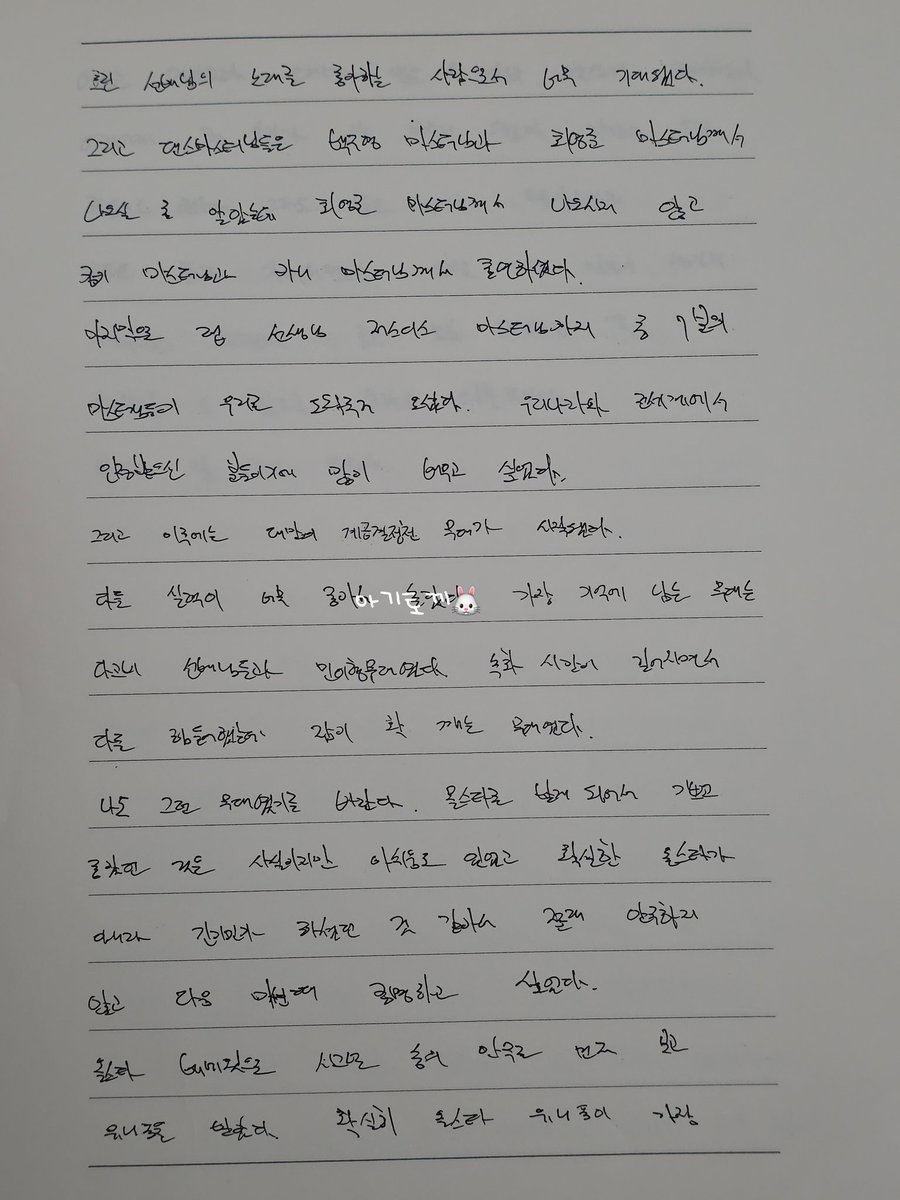 선배님의 노래를 좋아하는 사람으로서 너무 기대됐다.
그리고 댄스마스터님들은 백구영 마스터님과 최영준 마스터님께서
나오실 줄 알았는데 최영준 마스터님께서 나오시지 않고
마스터님과 카니 마스터님께서 출연하셨다.
마지막으로 랩 선생님 저스디스 마스터님까지 총 7분의
마스터님들이 우리를 도와주러 오셨다. 우리나라와 전세계에서
인정받으신 분들이기에 많이 배우고 싶었다.
그리고 이후에는 대망의 계급결정전 무대가 시작됐다.
다들 실력이 너무 좋아서 아기토끼 가장 기억에 남는 무대는
선배님들과 민이형무대였다. 녹화 시간이 길어지면서
다들 힘들어했는데 잠이 확 깨는 무대였다.
나도 그런 무대였기를 바란다. 올스타를 받게 되어서 기쁘고
좋았던 것은 사실이지만 만장일치 확실한 올스타가
아니라 하셨던 것 같아서 안주하지
않고 다음 미션때 증명하고 싶었다.
올스타 베네핏으로 시그널 송의 안무를 먼저 보고
유니폼을 받았다. 확실히 올스타 유니폼이 가장